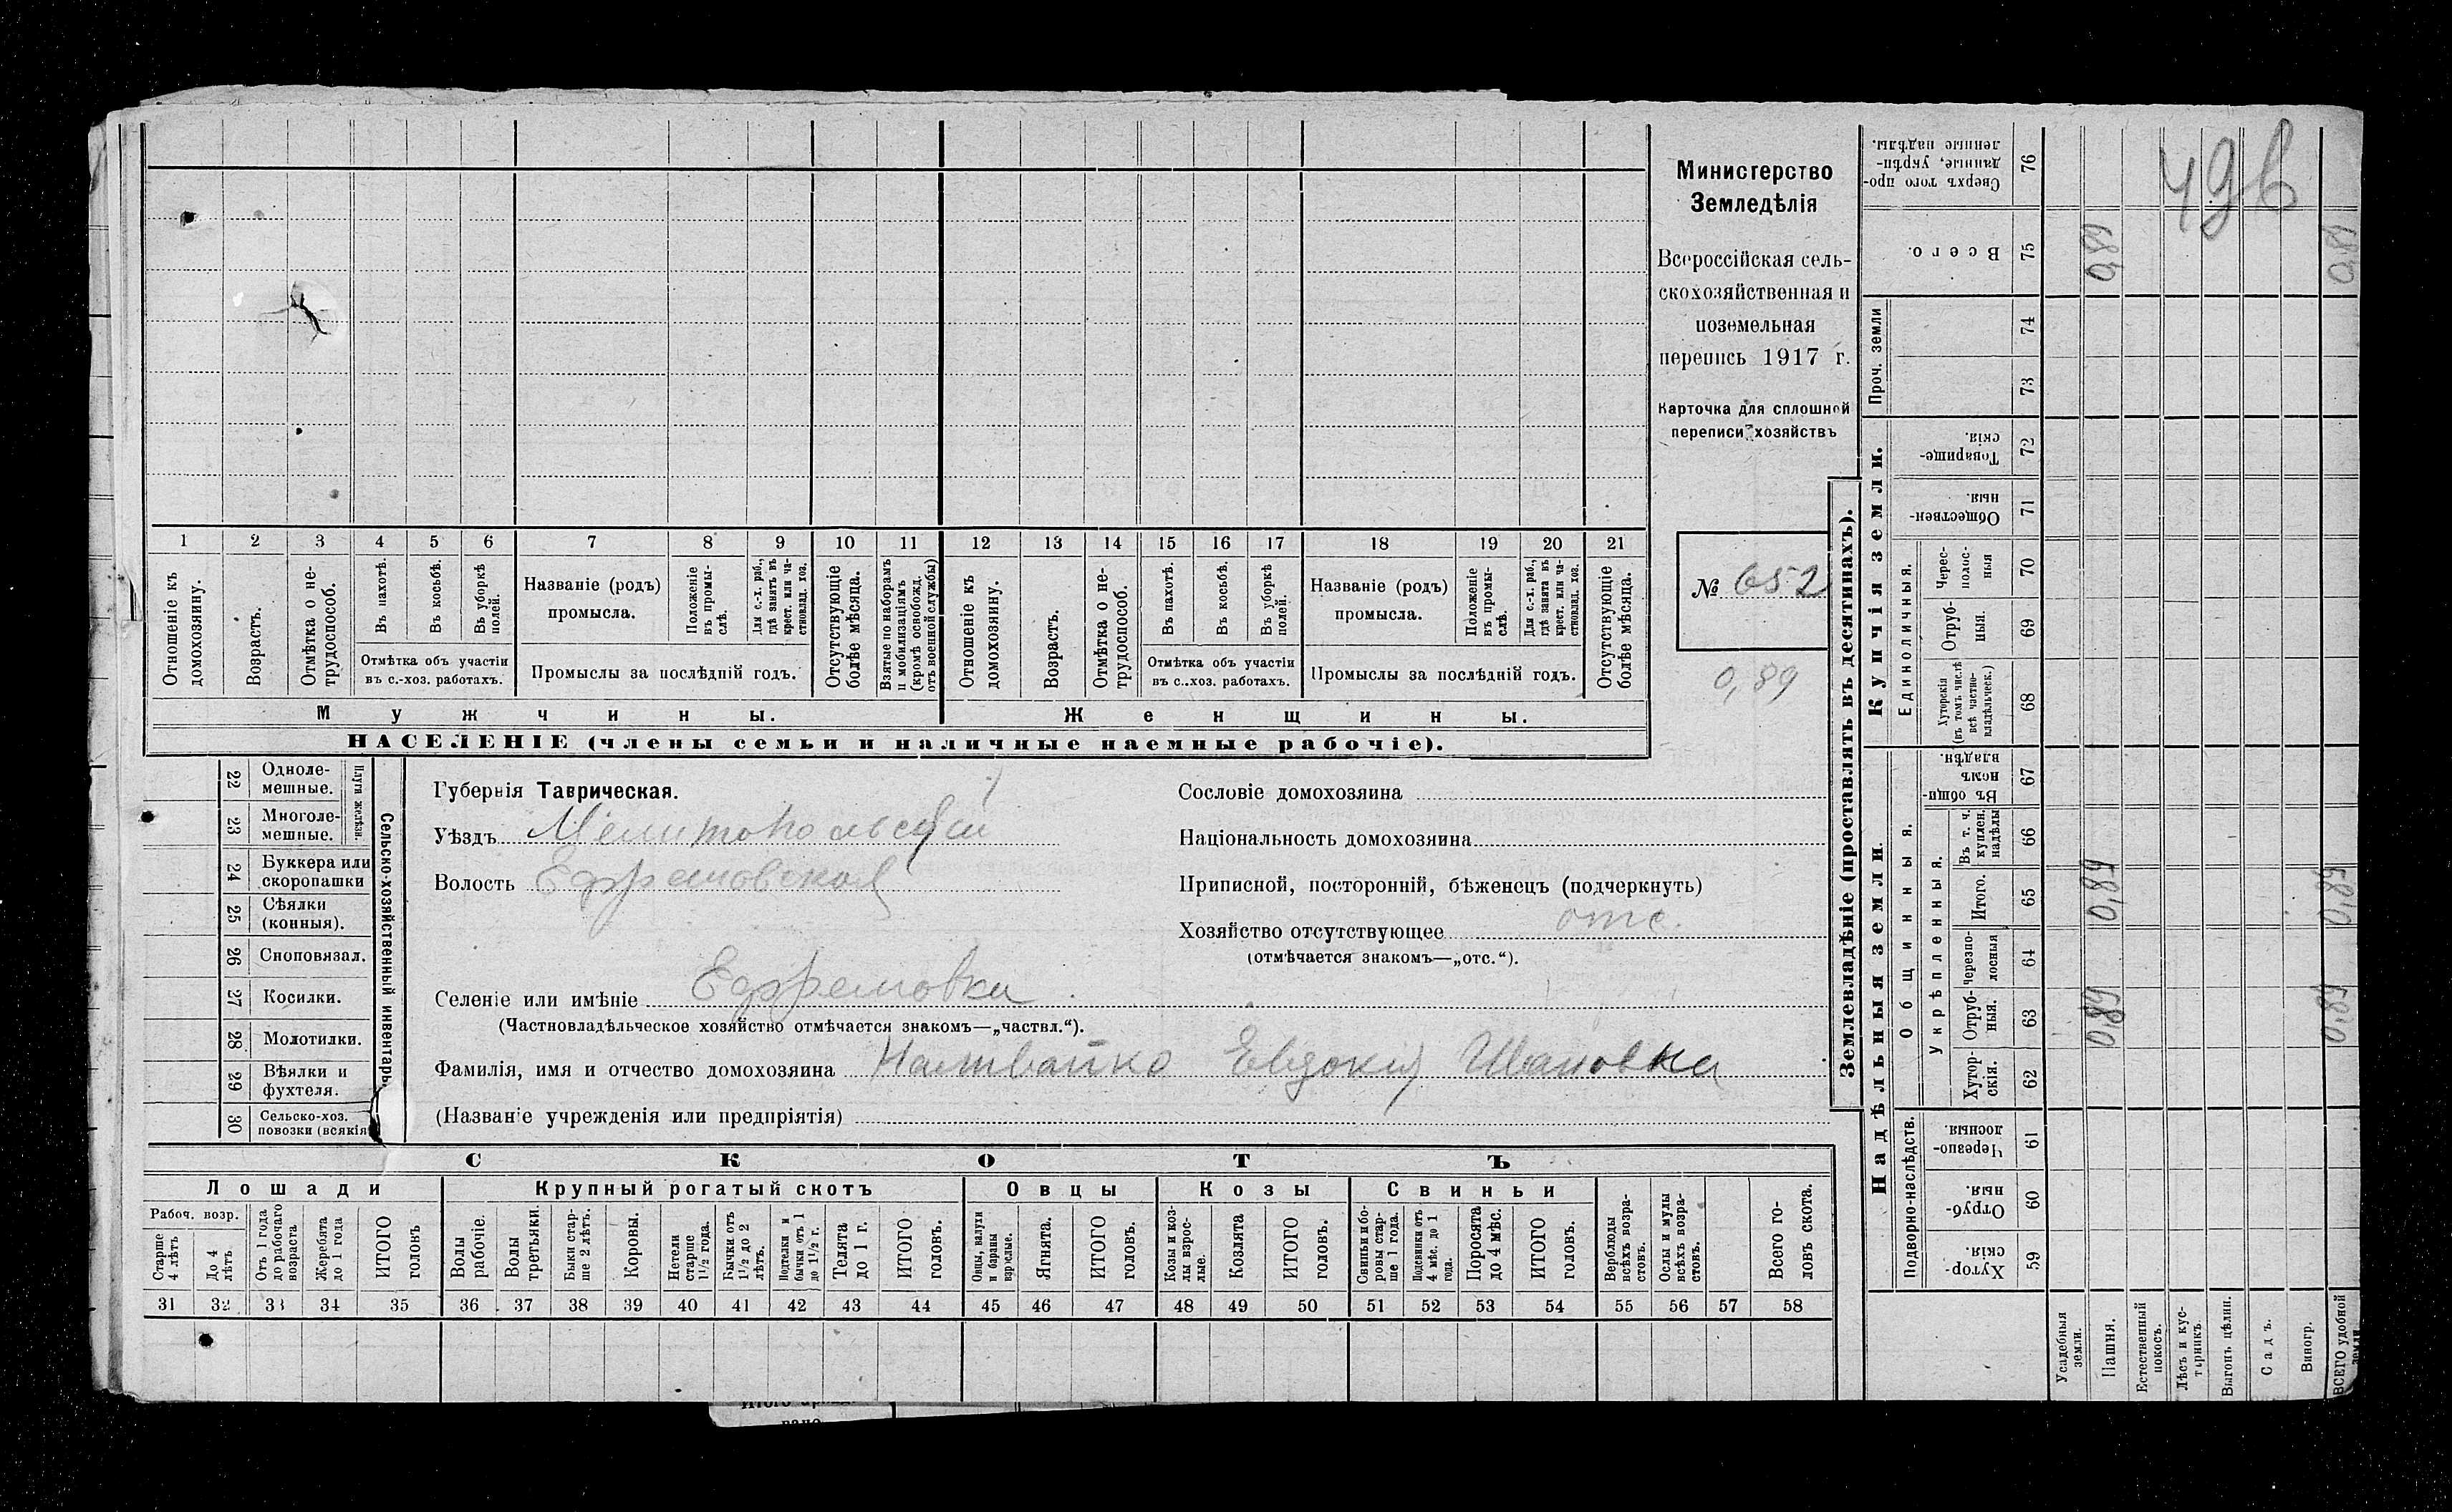 Министерство
Земледѣлія
Всероссійская сель-
скохозяйственная и
поземельная
перепись 1917 г.
Карточка для сплошной
переписи хозяйствъ
№ 652
0,89
1 2 3 4 5 6 7 8 9 10 11 12 13 14 15 16 17 18 19 20 21
Отношеніе къ домохозяину.
Возрастъ.
Отмѣтка о не-трудоспособ.
Въ пахотѣ.
Въ косьбѣ.
Въ уборкѣ полей.
Названіе (родъ)
промысла.
Положеніе въ промы-слѣ.
Для с.-х. раб., гдѣ занятъ въ крест. или ча-стновлад. хоз.
Отсутствующіе болѣе мѣсяца.
Взятые по наборамъ и мобилизаціямъ (кромѣ освобожд. отъ военной службы)
Отношеніе къ домохозяину.
Возрастъ.
Отмѣтка о не-трудоспособ.
Въ пахотѣ.
Въ косьбѣ.
Въ уборкѣ полей.
Названіе (родъ)
промысла.
Положеніе въ промы-слѣ.
Для с.-х. раб., гдѣ занята въ крест. или ча-стновлад. хоз.
Отсутствующіе болѣе мѣсяца.
Отмѣтка объ участіи
въ с.-хоз. работахъ.
Промыслы за послѣдній годъ.
Отмѣтка объ участіи
въ с..хоз. работахъ.
Промыслы за послѣдній годъ.
Мужчины.
Женщины.
НАСЕЛЕНІЕ (члены семьи и наличные наемные рабочіе).
Сельско-хозяйственный инвентарь
Плуги желѣзн.
22 Одноле-мешные.
23 Многоле-мешные.
24 Буккера или скоропашки
25 Сѣялки (конныя).
26 Сноповязал.
27 Косилки.
28 Молотилки.
29 Вѣялки и фухтеля.
30 Сельско-хоз. повозки (всякія
Губернія Таврическая.
Уѣздъ Мелитопольскій
Волость Ефремовской
Селеніе или имѣніе Ефремовка
(Частновладѣльческое хозяйство отмѣчается знакомъ—„частвл.“).
Фамилія, имя и отчество домохозяина Наливайко Евдокия Ивановна
(Названіе учрежденія или предпріятія)
Сословіе домохозяина
Національность домохозяина
Приписной, посторонній, бѣженецъ (подчеркнуть)
Хозяйство отсутствующее отс.
(отмѣчается знакомъ—„отс.“).
СКОТЪ
Лошади
Крупный рогатый скотъ
Овцы
Козы
Свиньи
Рабоч. возр.
Старше 4 лѣтъ
До 4 лѣтъ
Отъ 1 года до рабочаго возраста
Жеребята до 1 года
ИТОГО головъ
Волы рабочіе.
Волы третьяки.
Быки стар-ше 2 лѣтъ.
Коровы.
Нетели старше 1½ года.
Бычки отъ 1½ до 2 лѣтъ.
Подтелки и бычки отъ 1 до 1½ г.
Телята до 1 г.
ИТОГО головъ.
Овцы, валухи и бараны взрослые.
Ягнята.
ИТОГО головъ.
Козы и коз-лы взрос-лые.
Козлята
ИТОГО головъ.
Свиньи и бо-ровы стар-ше 1 года.
Подсвинки отъ 4 мѣс. до 1 года.
Поросята до 4 мѣс.
ИТОГО головъ.
Верблюды всѣхъ возра-стовъ.
Ослы и мулы всѣхъ возра-стовъ.
Всего го-ловъ скота.
31 32 33 34 35 36 37 38 39 40 41 42 43 44 45 46 47 48 49 50 51 52 53 54 55 56 57 58
Землевладѣніе (проставлять въ десятинахъ).
Надѣльныя земли.
Купчія земли.
Проч. земли
Подворно-наслѣдств.
Общинныя.
Укрѣпленныя.
Единоличныя.
59 Хутор-скія.
60 Отруб-ныя.
61 Черезпо-лосныя.
62 Хутор-скія.
63 Отруб-ныя.
64 Черезпо-лосныя
65 Итого.
66 Въ т. ч. куплен. надѣлы
67 Въ общи-номъ владѣн.
68 Хуторскія (въ томъ числѣ всѣ частно-владѣльческ.)
69 Отруб-ныя.
70 Черес-полос-ныя
71 Обществен-ныя.
72 Товарище-скія.
73
74
75 Всего.
76 Сверхъ того про-данные, укрѣп-ленные надѣлы.
Усадебныя земли.
Пашня.
0,89
0,89
0,89
Естественный покосъ.
Лѣсъ и кус-тарникъ.
Выгонъ цѣлин.
Садъ.
Виногр.
ВСЕГО удобной земли
0,89
0,89
0,89
49в